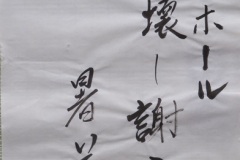 ホール
壊し謝
暑い